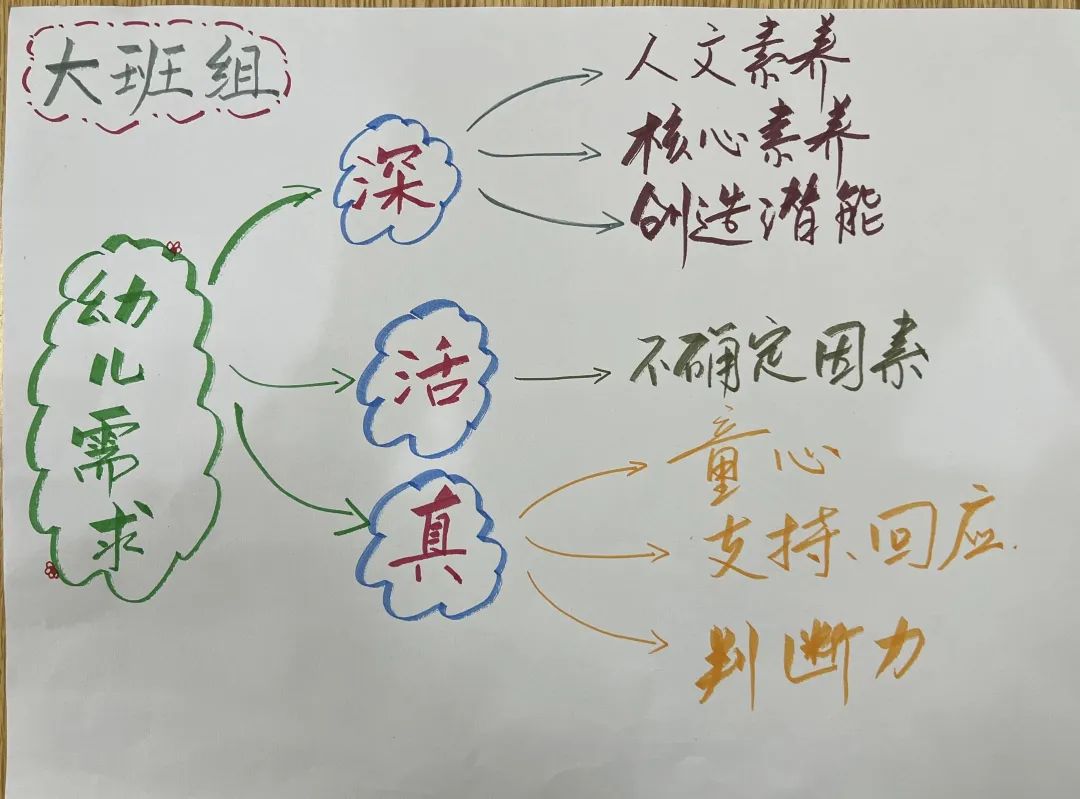 大班组
幼儿需求
深
人文素养
核心素养
创造潜能
活
不确定因素
真
童心
支持、回应.
判断力